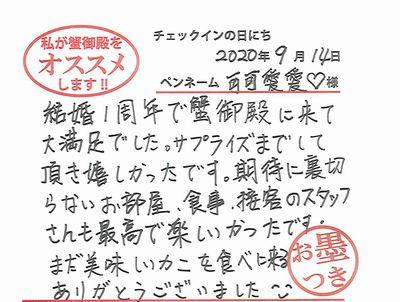 私が蟹御殿を
オススメ
します!!
チェックインの日にち
2020年9月14日
ペンネーム 可可愛愛♡様
結婚1周年で蟹御殿に来て
大満足でした。サプライズまでして
頂き嬉しかったです。期待に裏切
らないお部屋、食事、接客のスタッフ
さんも最高で楽しいかったです。
まだ美味いカニを食べに来る
ありがとうございました
お墨
つき